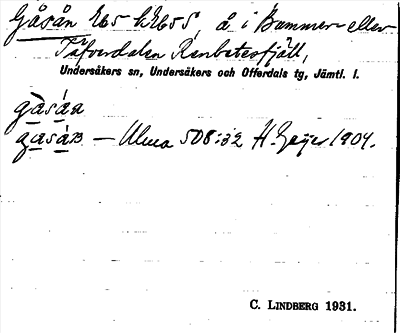 Gåsån 265 h265S, å i Bummer- eller
Tåfverdalen Renbetesfjäll,
Undersåkers sn, Undersåkers och Offerdals tg, Jämtl. l.
gåsáa
gasán — Ulma 508:32 H. Geijer 1904.
C. LINDBERG 1931.